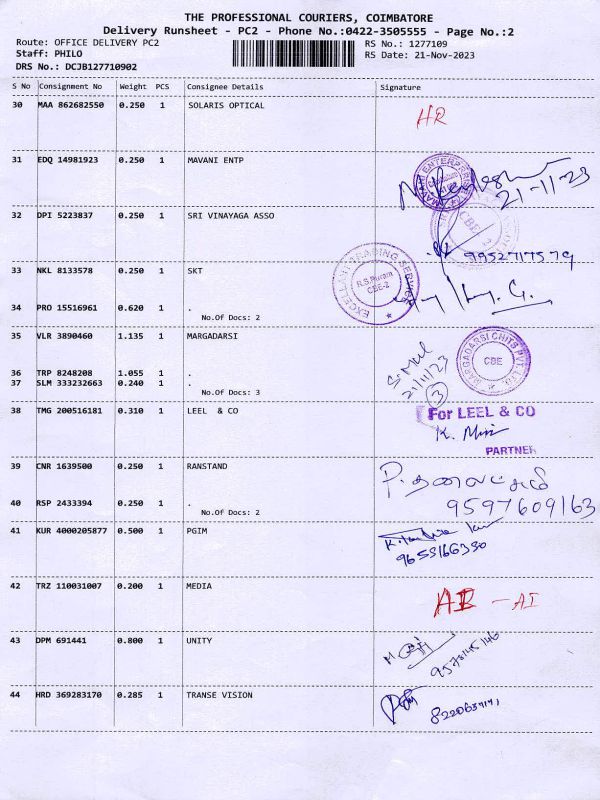 THE PROFESSIONAL COURIERS, COIMBATORE
Delivery Runsheet - PC2 - Phone No.:0422-3505555 - Page No.:2
Route: OFFICE DELIVERY PC2
RS No.: 1277109
Staff: PHILO
RS Date: 21-Nov-2023
DRS No.: DCJB127710902
S No Consignment No Weight PCS Consignee Details Signature
30 MAA 862682550 0.250 1 SOLARIS OPTICAL
HR
31 EDQ 14981923 0.250 1 MAVANI ENTP
MAVANI ENTERPRISES
21-11-23
32 DPI 5223837 0.250 1 SRI VINAYAGA ASSO
CBE
9952717579
33 NKL 8133578 0.250 1 SKT
EXCELLANT TRADING SERVICE
R.S.Puram
CBE-2
34 PRO 15516961 0.620 1 .
No.Of Docs: 2
35 VLR 3890460 1.135 1 MARGADARSI
MARGADARSI CHITS PVT LTD
CBE
21/11/23
3
36 TRP 8248208 1.055 1 .
37 SLM 333232663 0.240 1 .
No.Of Docs: 3
38 TMG 200516181 0.310 1 LEEL & CO
For LEEL & CO
PARTNER
39 CNR 1639500 0.250 1 RANSTAND
9597609163
40 RSP 2433394 0.250 1 .
No.Of Docs: 2
41 KUR 4000205877 0.500 1 PGIM
42 TRZ 110031007 0.200 1 MEDIA
AB - AI
43 DPM 691441 0.800 1 UNITY
44 HRD 369283170 0.285 1 TRANSE VISION